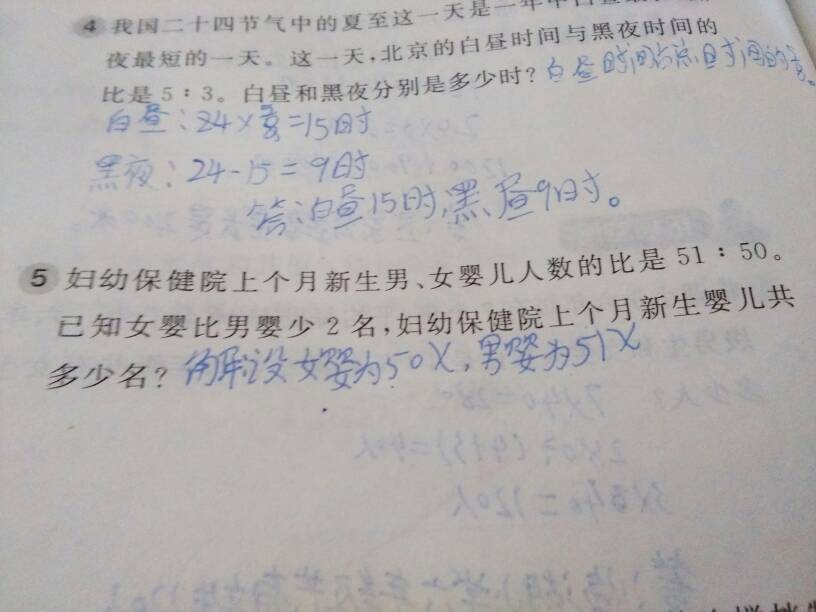 4 我国二十四节气中的夏至这一天是一年中白昼最
夜最短的一天。这一天,北京的白昼时间与黑夜时间的
比是 5∶3。白昼和黑夜分别是多少时?白昼时间占总时间的
白昼:24×=15时
黑夜:24-15=9时
答:白昼15时,黑昼9时。
5 妇幼保健院上个月新生男、女婴儿人数的比是 51∶50。
已知女婴比男婴少 2 名,妇幼保健院上个月新生婴儿共
多少名?解设女婴为50X,男婴为51X